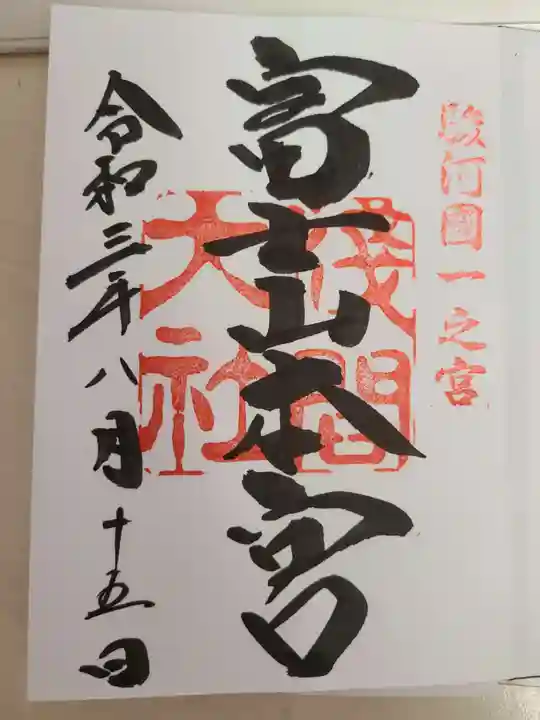 駿河國一之宮
富士山本宮
浅間
大社
令和三年八月十五日